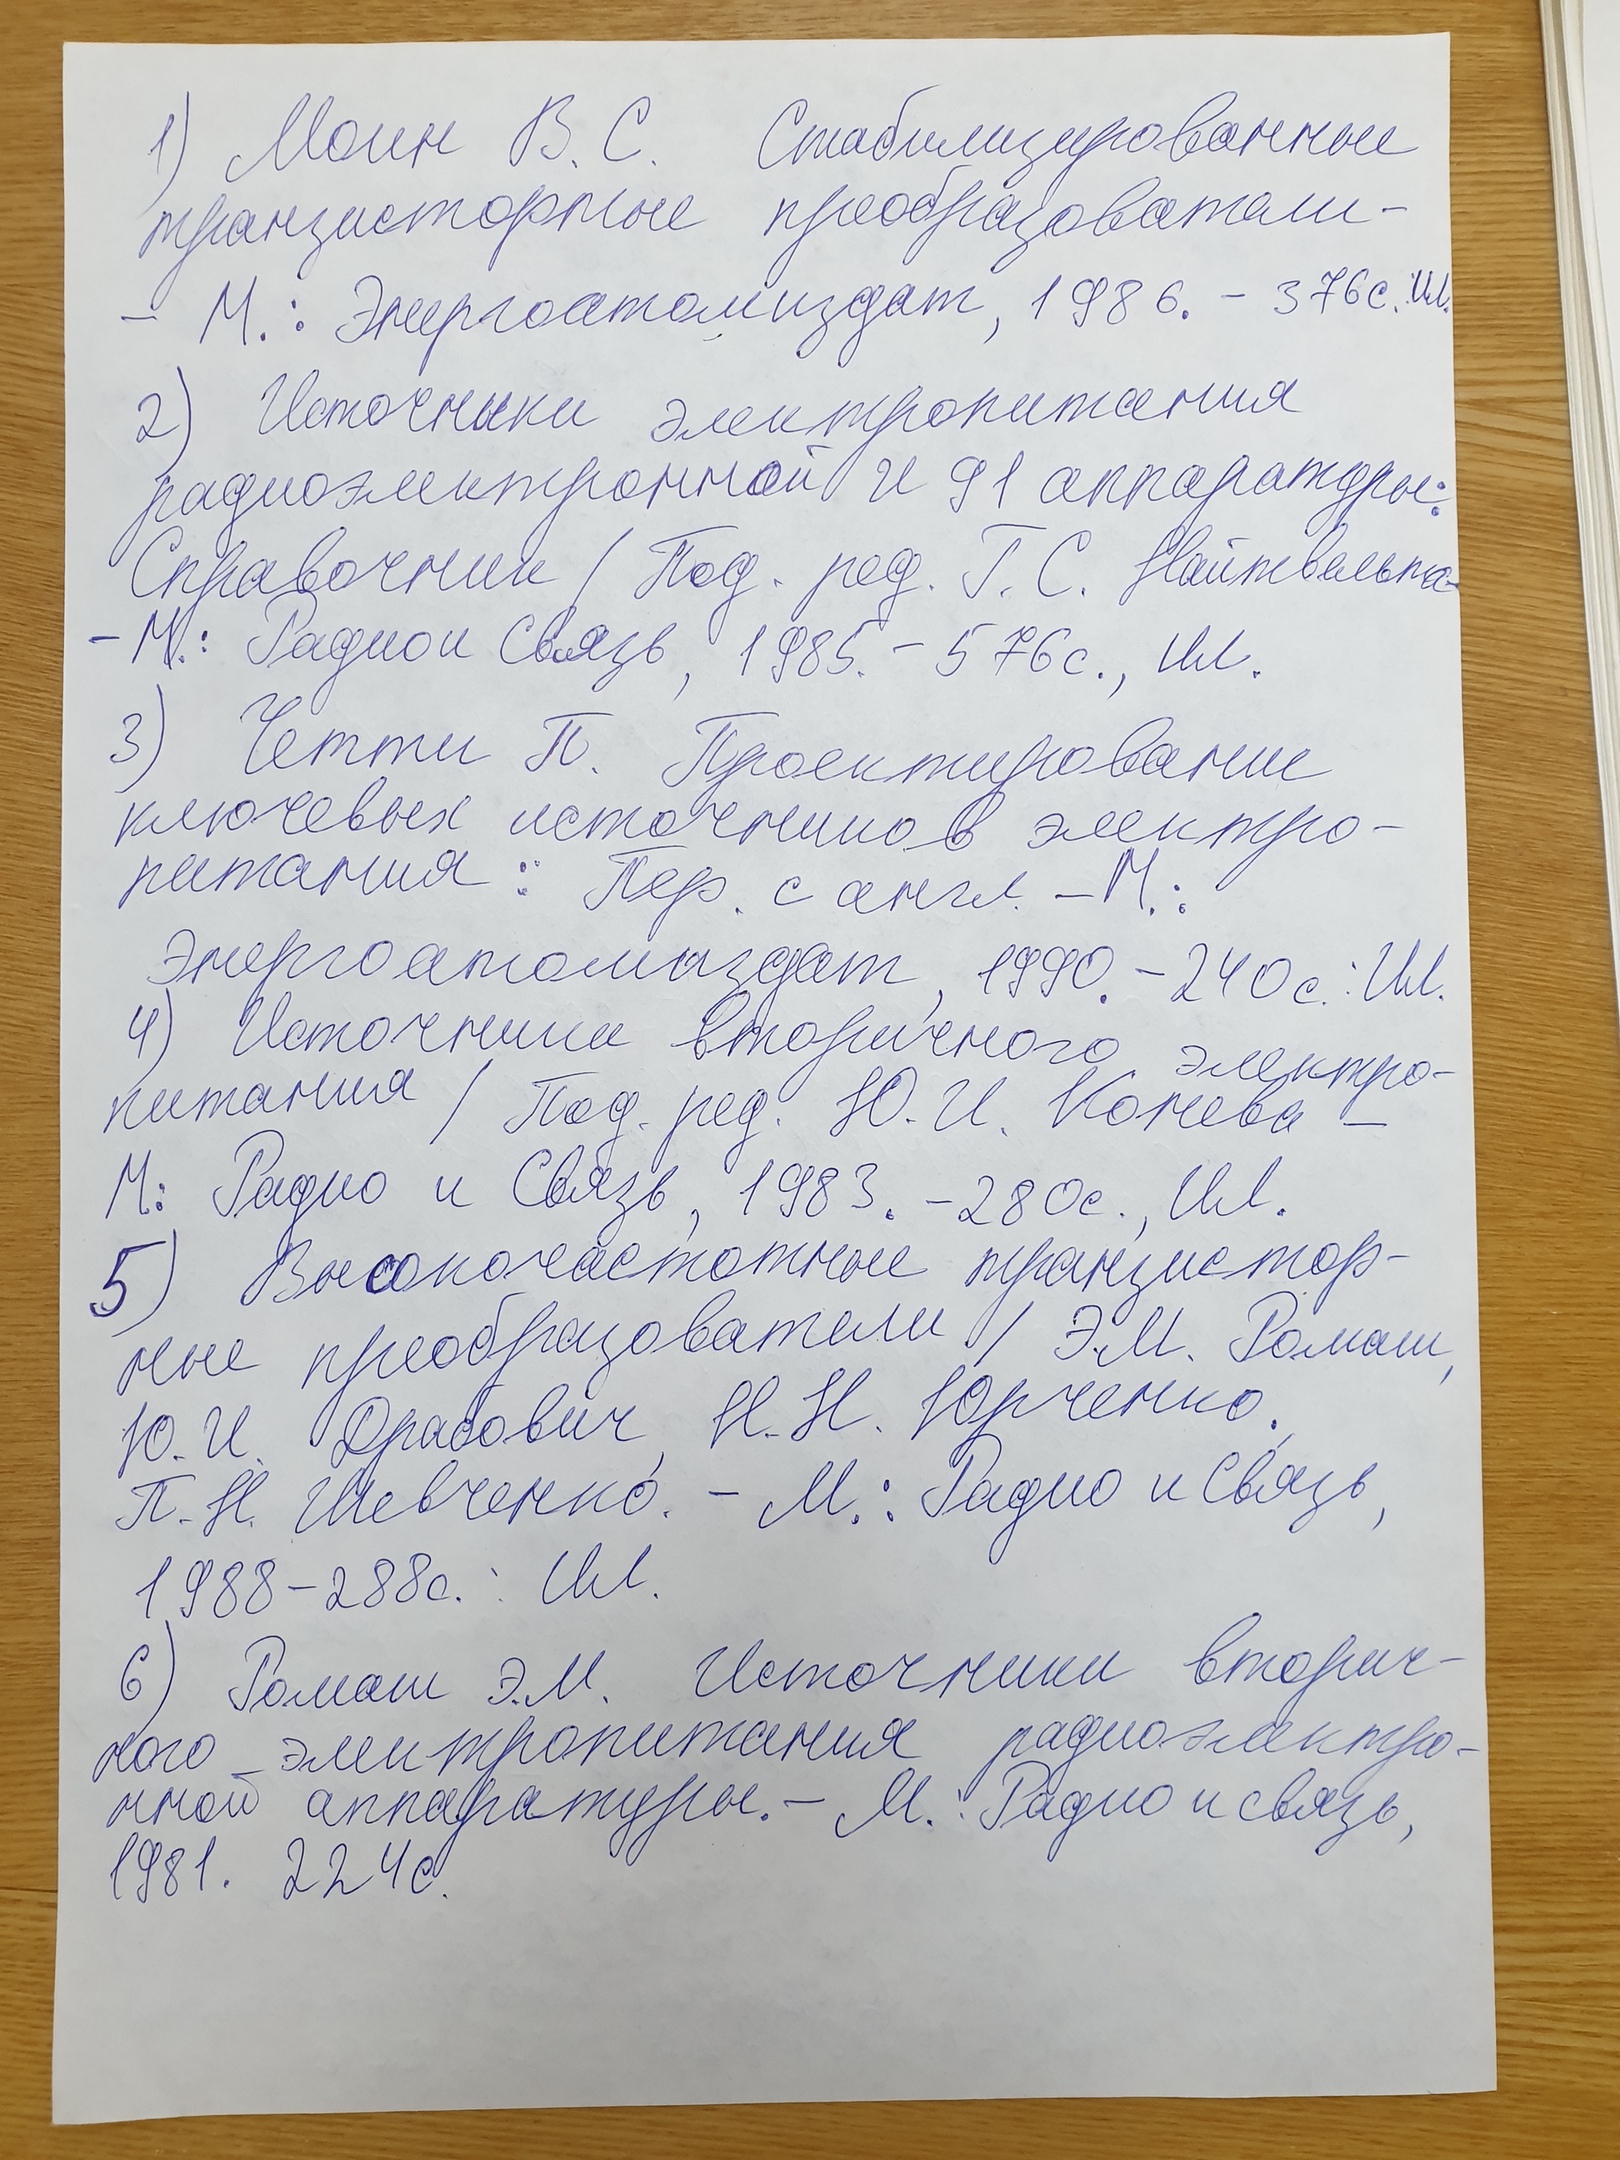 1) Моин В. С. Стабилизированные
транзисторные преобразователи -
- М. : Энергоатомиздат, 1986. - 376с. : Ил.
2) Источники электропитания
радиоэлектронной и 91 аппаратуры:
Справочник / Под. ред. Г. С. Найтвельта-
- М. : Радио и Связь, 1985. - 576с., Ил.
3) Четти П. Проектирование
ключевых источников электро-
питания : Пер. с англ. - М. :
Энергоатомиздат, 1990. - 240с. : Ил.
4) Источники вторичного электро-
питания / Под. ред. Ю. И. Конева -
М: Радио и Связь, 1983. - 280с., Ил.
5) Высокочастотные транзистор-
ные преобразователи / Э.М. Ромаш,
Ю. И. Драбович, Н. Н. Юрченко,
П. Н. Шевченко. - М. : Радио и Связь,
1988 - 288с. : Ил.
6) Ромаш Э.М. Источники вторич-
ного электропитания радиоэлектро-
нной аппаратуры. - М. : Радио и связь,
1981. 224с.